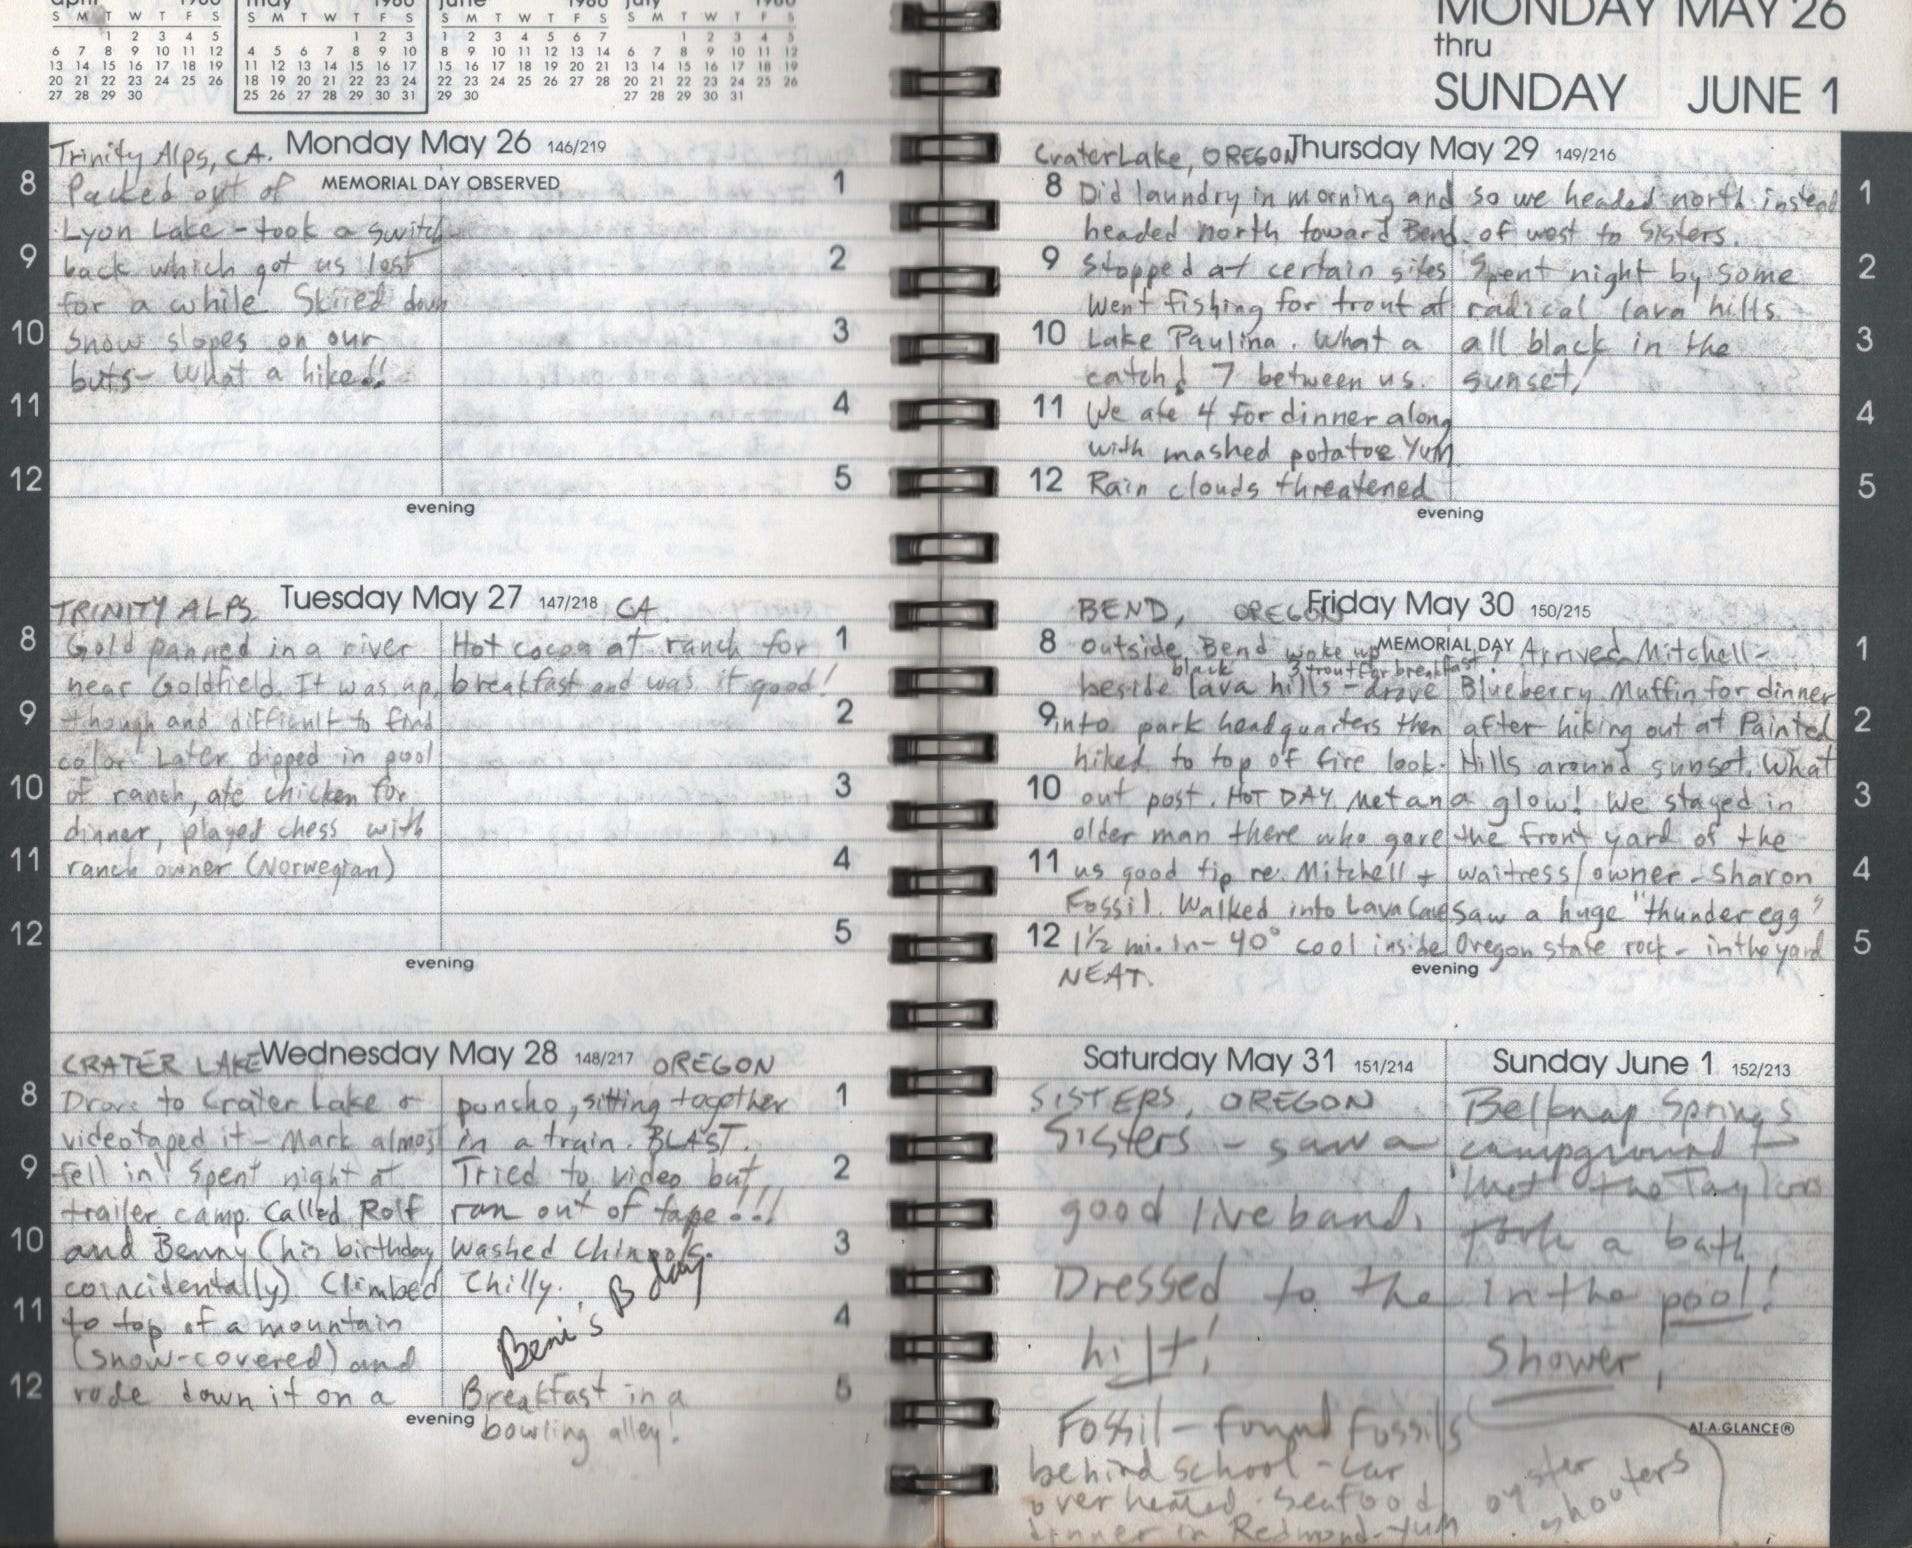 april 1986 may 1986 june 1986 july 1986
S M T W T F S S M T W T F S S M T W T F S S M T W T F S
1 2 3 4 5 1 2 3 1 2 3 4 5 6 7 1 2 3 4 5
6 7 8 9 10 11 12 4 5 6 7 8 9 10 8 9 10 11 12 13 14 6 7 8 9 10 11 12
13 14 15 16 17 18 19 11 12 13 14 15 16 17 15 16 17 18 19 20 21 13 14 15 16 17 18 19
20 21 22 23 24 25 26 18 19 20 21 22 23 24 22 23 24 25 26 27 28 20 21 22 23 24 25 26
27 28 29 30 25 26 27 28 29 30 31 29 30 27 28 29 30 31
Trinity Alps, CA. Monday May 26 146/219
MEMORIAL DAY OBSERVED
8 Packed out of 1
Lyon Lake - took a switch
9 back which got us lost 2
for a while. Skiied down
10 snow slopes on our 3
buts - What a hike!!
11 4
12 5
evening
TRINITY ALPS Tuesday May 27 147/218 CA
8 Gold panned in a river
near Goldfield. It was up,
9 though and difficult to find
color. Later dipped in pool
10 of ranch, ate chicken for
dinner, played chess with
11 ranch owner (Norwegian)
12
Hot cocoa at ranch for 1
breakfast and was it good!
2
3
4
5
evening
CRATER LAKE Wednesday May 28 148/217 OREGON
8 Drove to Crater Lake &
videotaped it - Mark almost
9 fell in! Spent night at
trailer camp. Called Rolf
10 and Benny (his birthday
coincidentally). Climbed
11 to top of a mountain
(snow-covered) and
12 rode down it on a
poncho, sitting together 1
in a train. BLAST.
Tried to video but 2
ran out of tape!!!
Washed Chinpols. 3
Chilly.
Beni's B day 4
Breakfast in a 5
evening bowling alley!
MONDAY MAY 26
thru
SUNDAY JUNE 1
Crater Lake, OREGON Thursday May 29 149/216
8 Did laundry in morning and
headed north toward Bend.
9 Stopped at certain sites
Went fishing for trout at
10 Lake Paulina. What a
catch! 7 between us.
11 We ate 4 for dinner along
with mashed potatoe Yum
12 Rain clouds threatened
so we headed north instead 1
of west to Sisters.
Spent night by some 2
radical lava hills
all black in the 3
sunset!
4
5
evening
BEND, OREGON Friday May 30 150/215
MEMORIAL DAY
8 outside Bend woke up
black 3 trout for breakfast!
beside lava hills - drove
9 into park headquarters then
hiked to top of fire look-
10 out post. HOT DAY. Met an
older man there who gave
11 us good tip re. Mitchell +
Fossil. Walked into Lava Cave
12 1 1/2 mi. In - 40° cool inside
NEAT.
Arrived Mitchell - 1
Blueberry Muffin for dinner
after hiking out at Painted 2
Hills around sunset. What
a glow! We stayed in 3
the front yard of the
waitress/owner - Sharon 4
Saw a huge "thunder egg"
Oregon state rock - in the yard 5
evening
Saturday May 31 151/214
SISTERS, OREGON
Sisters - saw a
good live band,
Dressed to the
hilt!
Fossil - found fossils
behind school - car
overheated. Seafood
dinner in Redmond - Yum
Sunday June 1 152/213
Belknap Springs
campground +
"met" the Taylors
Took a bath
In the pool!
Shower,
AT-A-GLANCE®
oyster
shooters